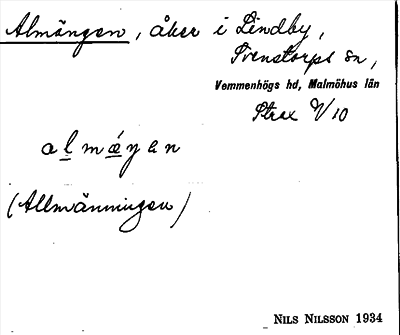 Almängen, åker i Lindby,
Svenstorps sn,
Vemmenhögs hd, Malmöhus län
Strax V/10
almǽŋen
(Allmänningen)
NILS NILSSON 1934